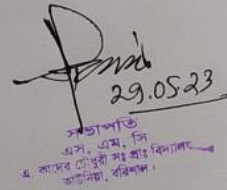 29.05.23
সভাপতি
এস, এম, সি
এ, কাদের চৌধুরী সঃ প্রাঃ বিদ্যালয়
বরিশাল।